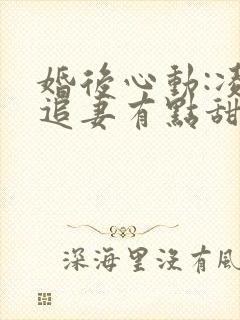 婚後心動:凌
追妻有點甜
深海里沒有風